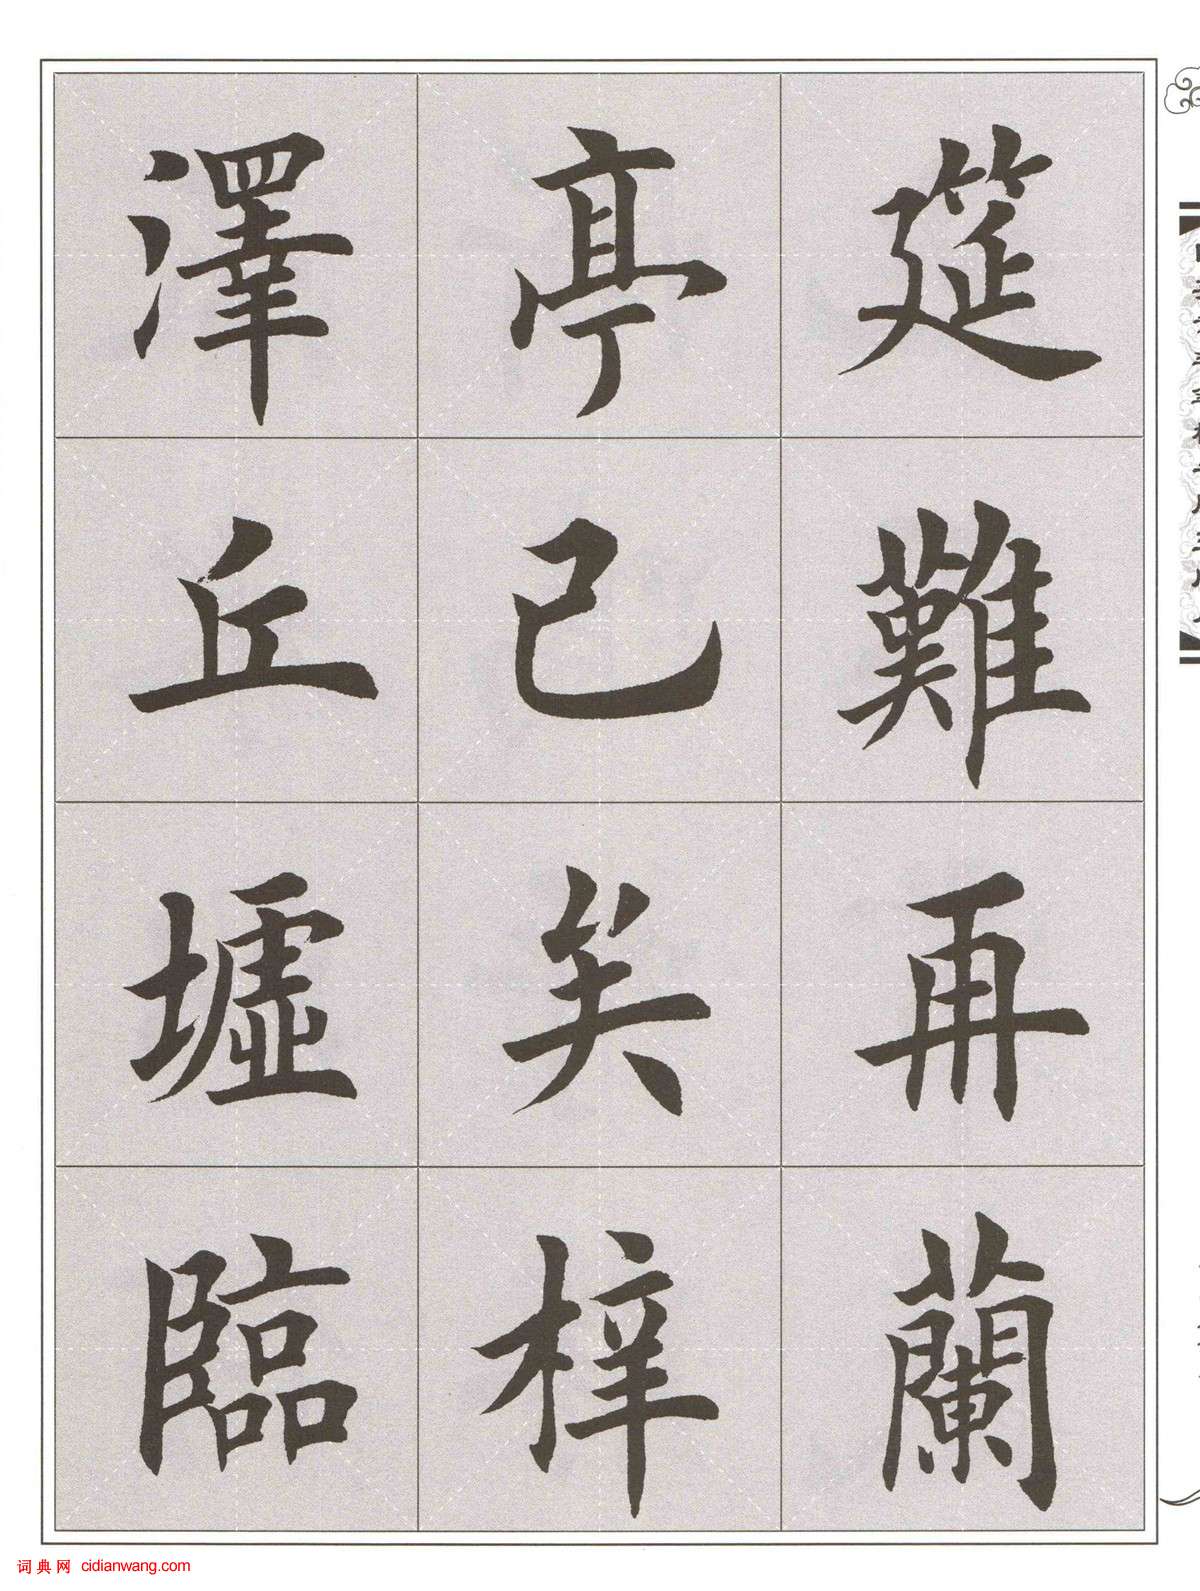 筵難再蘭
亭已矣梓
澤丘墟臨
词典网 cidianwang.com